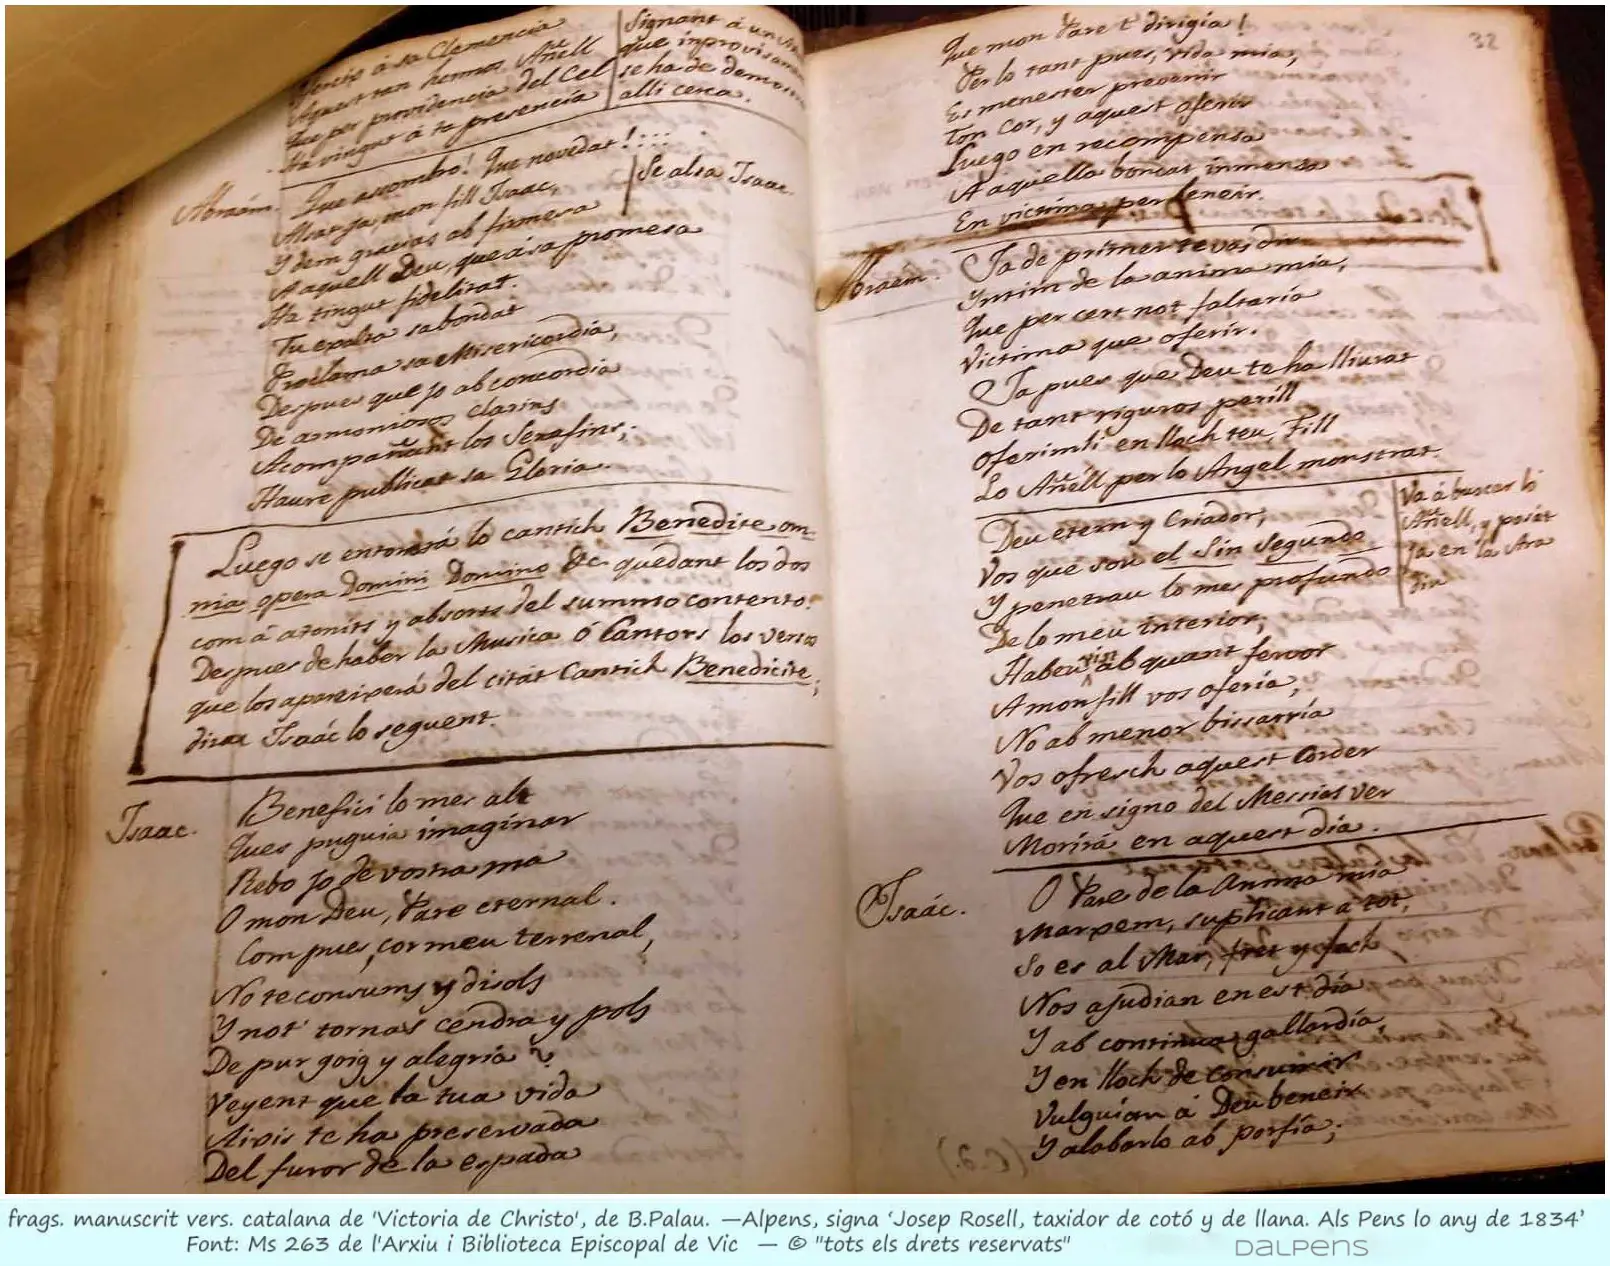 Mercés á sa Clemencia
Aquest tan hermos Añell
Que per providencia del Cel
Ha vingut á ta presencia
Signant á un
que inprovisament
se ha de demostrar
alli cerca.
Abraám. Que assombro! Que novedat!....
Alsat ja mon fill Isaac,
Se alsa Isaac.
Y dem gracias ab firmesa
A aquell Deu, que á sa promesa
Ha tingut fidelitat.
Tu exalta sa bondat
Proclama sa Misericordia,
Despues que jo ab concordia
De armoniosos clarins
Acompañant los Serafins,
Hauré publicat sa Gloria.
Luego se entonará lo cantich Benedite om-
nia opera Domini Domino &c quedant los dos
com á atonits y absorts del summo contento:
Despues de haber la Musica ó Cantors los versos
que los apareixerá del citát Cantich Benedicite;
dirá Isaác lo seguent.
Isaac. Benefici lo mes alt
Ques puguia imaginar
Rebo jo de vostra ma
O mon Deu, Pare eternal.
Com pues, cor meu terrenal,
No te consums y disols
Y not' tornas cendra y pols
De pur goig y alegria?
Veyent que la tua vida
Aixis te ha preservada
Del furor de la espada
32
Que mon Pare t' dirigia!
Per lo tant pues, vida mia,
Es menester prevenir
Ton Cor, y aquest oferir
Luego en recompensa
A aquella bontat inmensa
En victima per beneir.
Abraám. Ja de primer te vas dir
Intim de la anima mia,
Que per cert not faltaria
Victima que oferir.
Ja pues que Deu te ha lliurat
De tant riguros perill
Oferimli en lloch teu, Fill
Lo Añell per lo Angel monstrat.
Deu etern y Criador,
Vos que sou el Sin Segundo
Y penetrau lo mes profundo
De lo meu interior,
Habeu vist ab quant fervor
A mon fill vos oferia,
No ab menor bissarria
Vos ofresch aquest Corder
Que en signo del Messias ver
Morirá en aquest dia.
Va á buscar lo
Añell, y posát
ja en la Ara
diu
Isaác. O Pare de la Anima mia
Marxem, suplicant a tot,
So es al Mar, fret y foch
Nos ajudian en est dia
Y ab continua gallardia,
Y en lloch de consumir
Vulguian á Deu beneir
Y alabarlo ab porfia;
frags. manuscrit vers. catalana de 'Victoria de Christo', de B.Palau. —Alpens, signa ‘Josep Rosell, taxidor de cotó y de llana. Als Pens lo any de 1834’
Font: Ms 263 de l'Arxiu i Biblioteca Episcopal de Vic — © "tots els drets reservats"
DALPENS